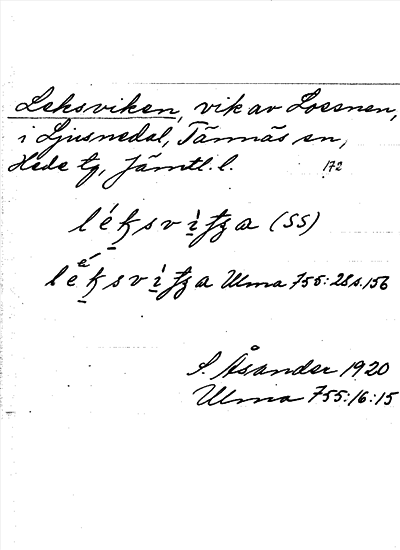 Leksviken, vik av Lossnen,
i Ljusnedal, Tännäs sn,
Hede tg, Jämtl. l. 172
(SS)
Ulma 755:28 s. 156
S. Åsander 1920
Ulma 755:16:15